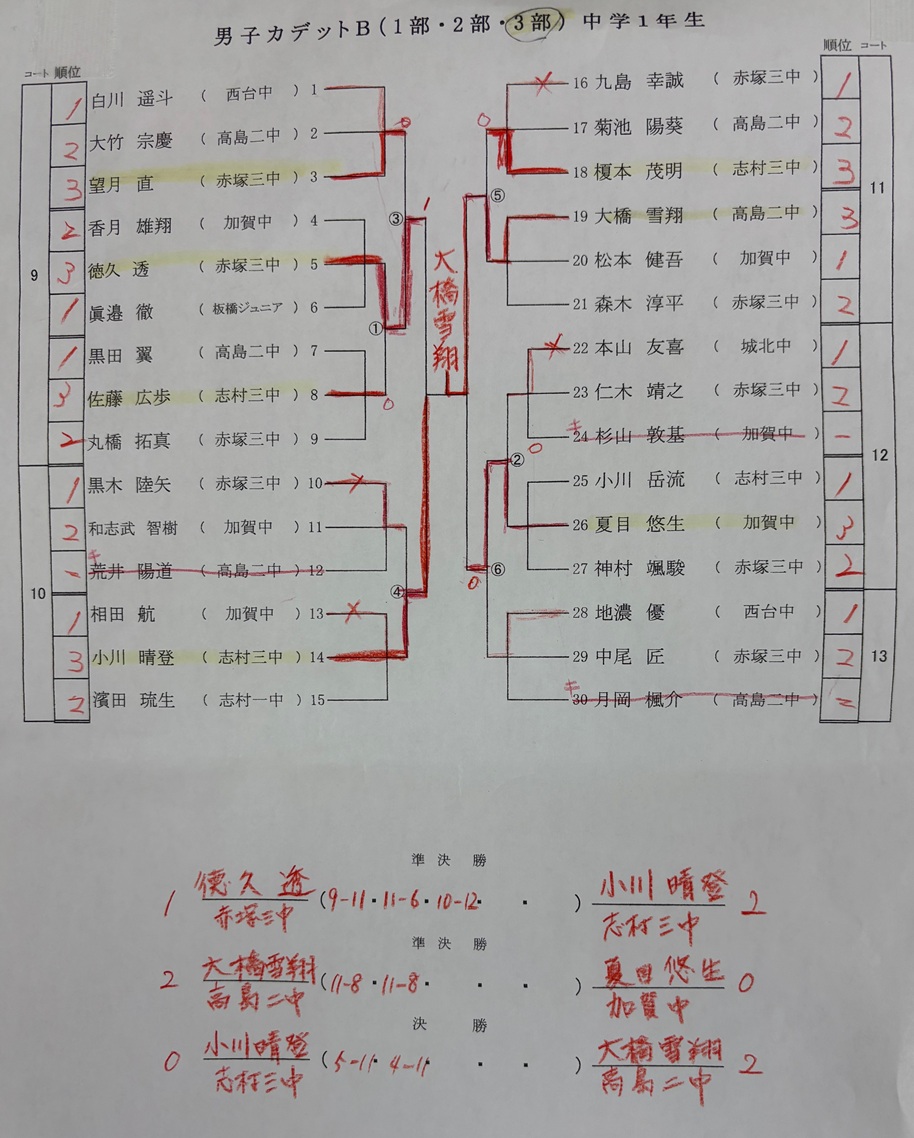 男子カデットB(1部・2部・3部) 中学1年生
コート 順位
順位 コート
9
1 白川 遥斗 ( 西台中 ) 1
2 大竹 宗慶 ( 高島二中 ) 2
3 望月 直 ( 赤塚三中 ) 3
2 香月 雄翔 ( 加賀中 ) 4
3 徳久 透 ( 赤塚三中 ) 5
1 眞邉 徹 ( 板橋ジュニア ) 6
1 黒田 翼 ( 高島二中 ) 7
3 佐藤 広歩 ( 志村三中 ) 8
2 丸橋 拓真 ( 赤塚三中 ) 9
10
1 黒木 陸矢 ( 赤塚三中 ) 10
2 和志武 智樹 ( 加賀中 ) 11
キ
- 荒井 陽道 ( 高島二中 ) 12
1 相田 航 ( 加賀中 ) 13
3 小川 晴登 ( 志村三中 ) 14
2 濱田 琉生 ( 志村一中 ) 15
0
③
1
①
0
④
大橋雪翔
0
⑤
②
0
⑥
0
16 九島 幸誠 ( 赤塚三中 ) 1
17 菊池 陽葵 ( 高島二中 ) 2
18 榎本 茂明 ( 志村三中 ) 3
11
19 大橋 雪翔 ( 高島二中 ) 3
20 松本 健吾 ( 加賀中 ) 1
21 森木 淳平 ( 赤塚三中 ) 2
22 本山 友喜 ( 城北中 ) 1
23 仁木 靖之 ( 赤塚三中 ) 2
キ
24 杉山 敦基 ( 加賀中 ) -
12
25 小川 岳流 ( 志村三中 ) 1
26 夏目 悠生 ( 加賀中 ) 3
27 神村 颯駿 ( 赤塚三中 ) 2
28 地濃 優 ( 西台中 ) 1
29 中尾 匠 ( 赤塚三中 ) 2
13
キ
30 月岡 楓介 ( 高島二中 ) -
準 決 勝
1 徳久 透 (9-11・11-6・10-12・ ・ ) 小川 晴登 2
赤塚三中 志村三中
準 決 勝
2 大橋雪翔 (11-8・11-8・ ・ ・ ) 夏目 悠生 0
高島二中 加賀中
決 勝
0 小川晴登 (5-11・4-11・ ・ ・ ) 大橋雪翔 2
志村三中 高島二中